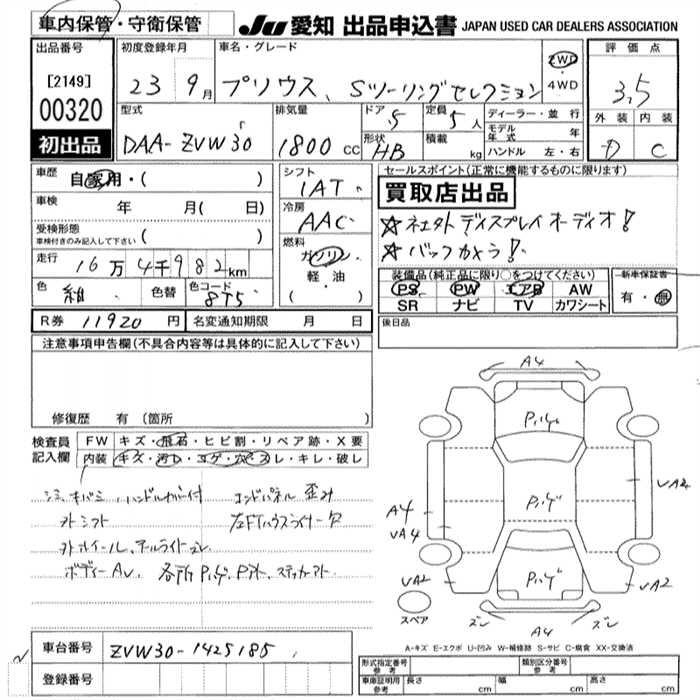 車内保管・守衛保管
JU 愛知 出品申込書 JAPAN USED CAR DEALERS ASSOCIATION
出品番号 [2149] 00320 初出品
初度登録年月 23年 9月
車名・グレード プリウス、Sツーリングセレクション
2WD・4WD
評価点 3.5
外装 D 内装 C
型式 DAA-ZVW30
排気量 1800cc
ドア 5
形状 HB
定員 5人
積載 kg
ディーラー・並行
モデル年式 年
ハンドル 左・右
車歴 自家用・( )
車検 年 月( 日)
受検形態 車検付きのみ記入して下さい ( )
走行 16万4千982km
色 紺 色替 色コード 8T5
シフト IAT
冷房 AAC
燃料 ガソリン・軽油・( )
セールスポイント(正常に機能するものに限ります)
買取店出品
☆ネエト外 ディスプレイオーディオ!
☆バックカメラ!
装備品(純正品に限り○をつけてください)
PS PW エアB AW
SR ナビ TV カワシート
新車保証書 有・無
後日品
R券 11920円 名変通知期限 月 日
注意事項申告欄(不具合内容等は具体的に記入して下さい)
修復歴 有 (箇所 )
検査員記入欄
FW キズ・飛石・ヒビ割・リペア跡・X要
内装 キズ・汚レ・コゲ・穴・スレ・キレ・破レ
シミ、キバミ、ハンドルカバー付 エンドパネル 歪み
外シフト 左FTハウスライナー欠
外ホイール、テールライトズレ
ボディーAV、各所Pハゲ、P外、ステッカーアト
A4
Pハゲ
Pハゲ
Pハゲ
A4
VA4
VA2
VA2
VA2
ズレ A4 ズレ
スペア
A-キズ E-エクボ U-凹み W-補修跡 S-サビ C-腐食 XX-交換済
車台番号 ZVW30-1425185
登録番号
形式指定番号 参考 類別区分番号 参考
車庫証明用 参考 長さ cm 幅 cm 高さ cm